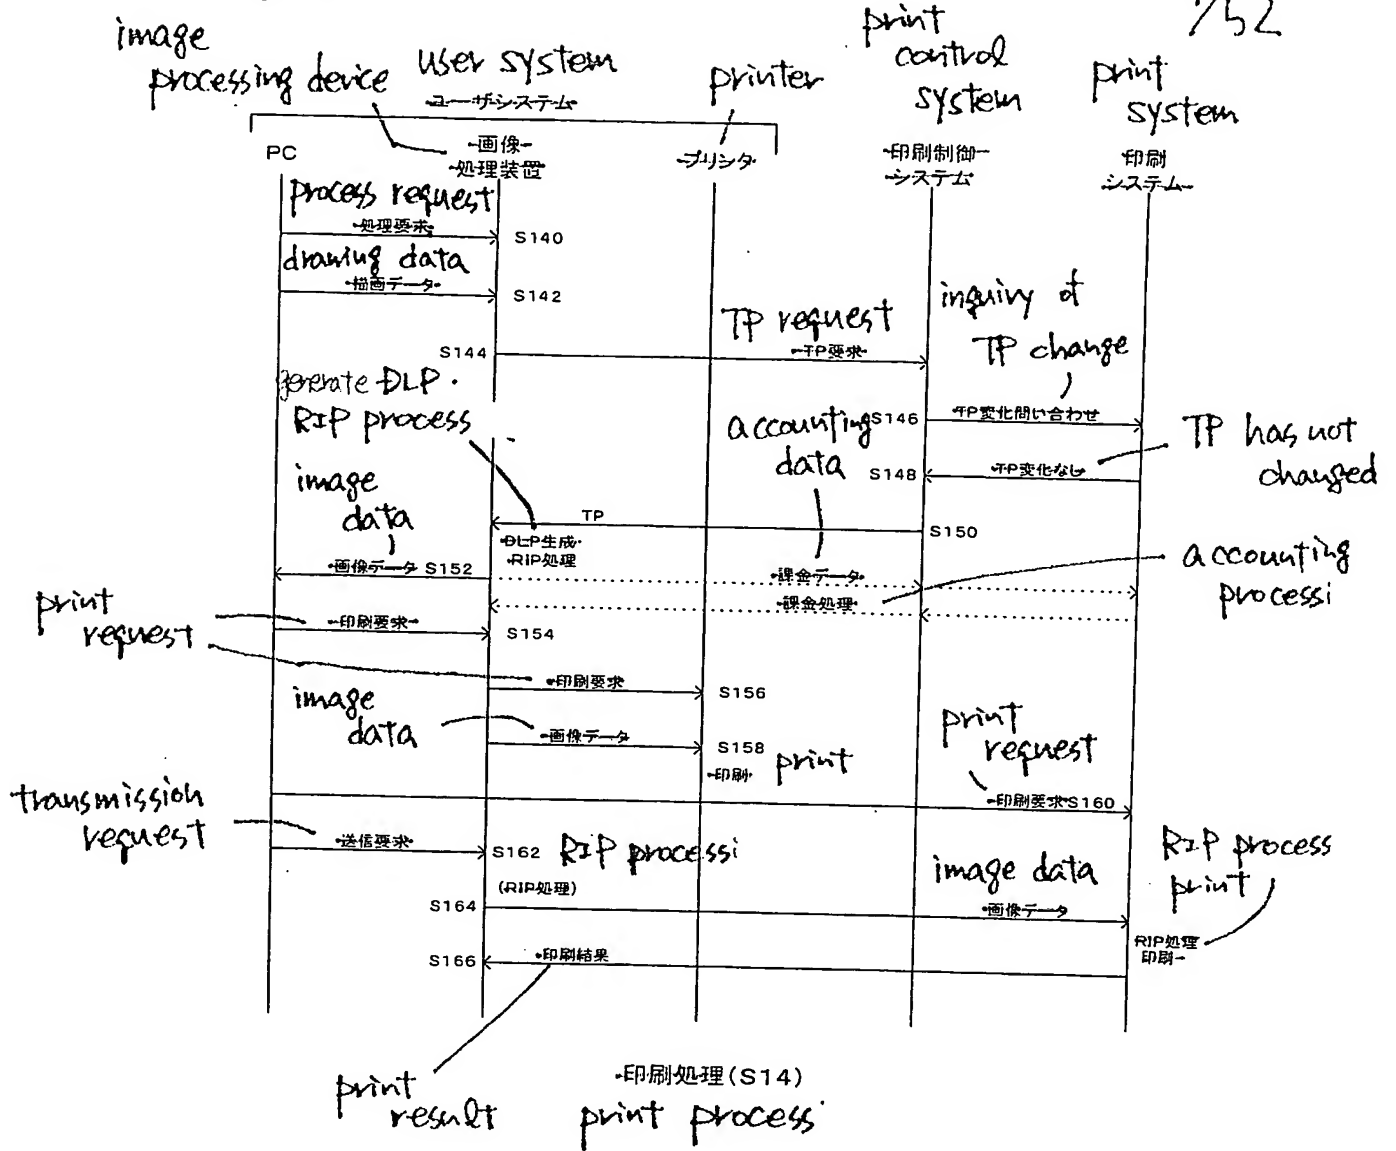 image
processing device
user system
printer
print
control
system
print
system
ユーザシステム
PC
画像
処理装置
プリンタ
印刷制御
システム
印刷
システム
process request
処理要求
S140
drawing data
描画データ
S142
TP request
S144
TP要求
inquiry of
TP change
generate DLP.
RIP process
accounting
data
S146
TP変化問い合わせ
TP has not
changed
S148
TP変化なし
image
data
TP
S150
DLP生成・
RIP処理
画像データ S152
課金データ
accounting
processi
課金処理
print
request
印刷要求
S154
印刷要求
S156
image
data
画像データ
S158
印刷
print
print
request
印刷要求S160
transmission
request
送信要求
S162
RIP processi
(RIP処理)
image data
RIP process
print
S164
画像データ
RIP処理
印刷
S166
印刷結果
print
result
印刷処理(S14)
print process